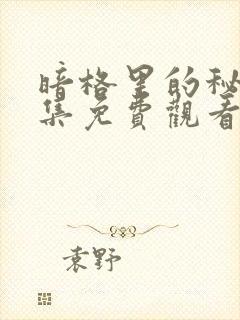 暗格里的秘
集免費觀看
袁野